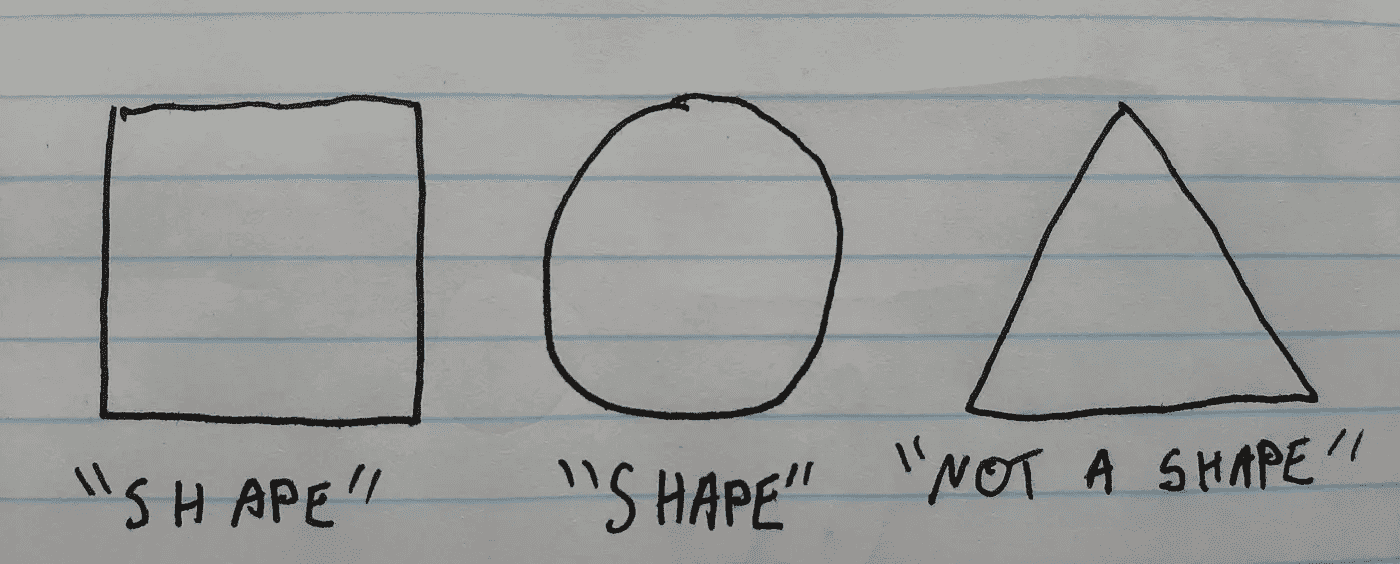 "SHAPE"
"SHAPE"
"NOT A SHAPE"